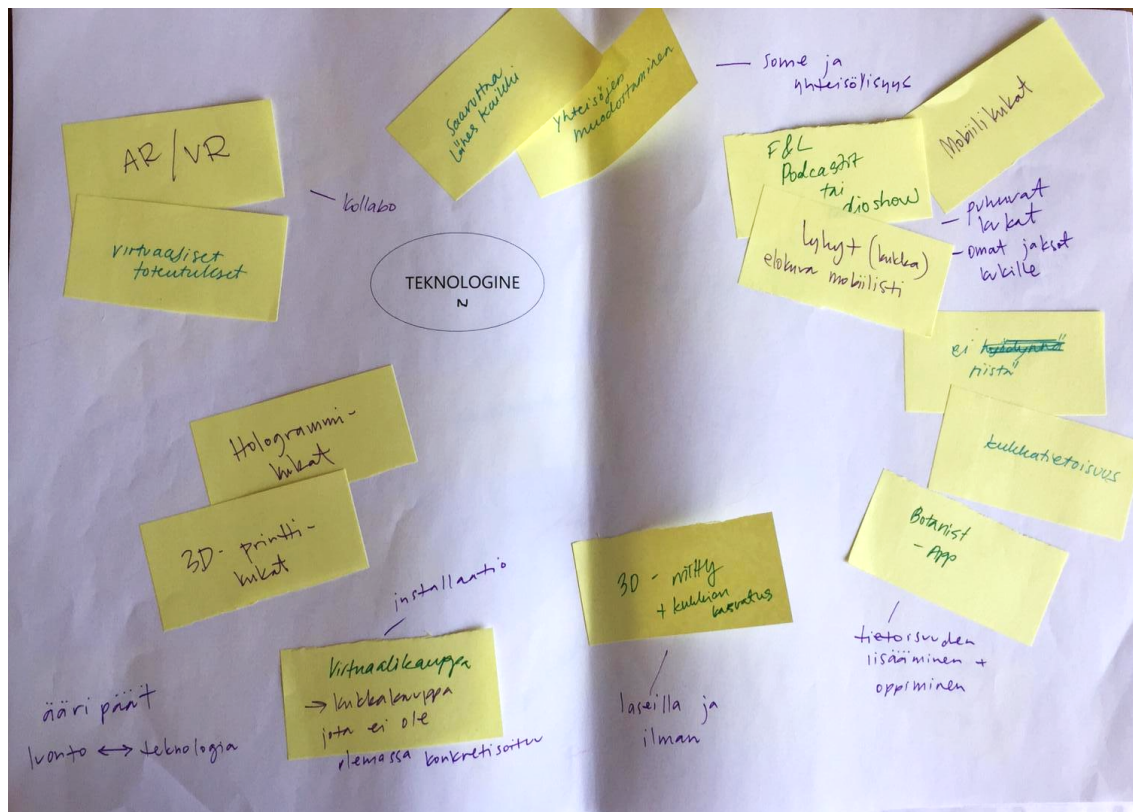 AR/VR
virtuaaliset
toteutukset
– kollabo
TEKNOLOGINE
N
Saavuttaa
lähes kaikki
yhteisöjen
muodostaminen
– some ja
yhteisöllisyys
Mobiilikukat
F&L
Podcastit
tai
dioshow
Lyhyt (kukka)
elokuva mobiilisti
– puhuvat
kukat
– omat jaksot
kukille
ei
riistä"
kukkatietoisuus
Botanist
– App
tietoisuuden
lisääminen +
oppiminen
Hologrammi-
kukat
3D-printti-
kukat
installaatio
Virtuaalikauppa
→ kukkakauppa
jota ei ole
olemassa konkretisoituu
3D-
+ kukkien
kasvatus
laseilla ja
ilman
ääri päät
luonto ↔ teknologia